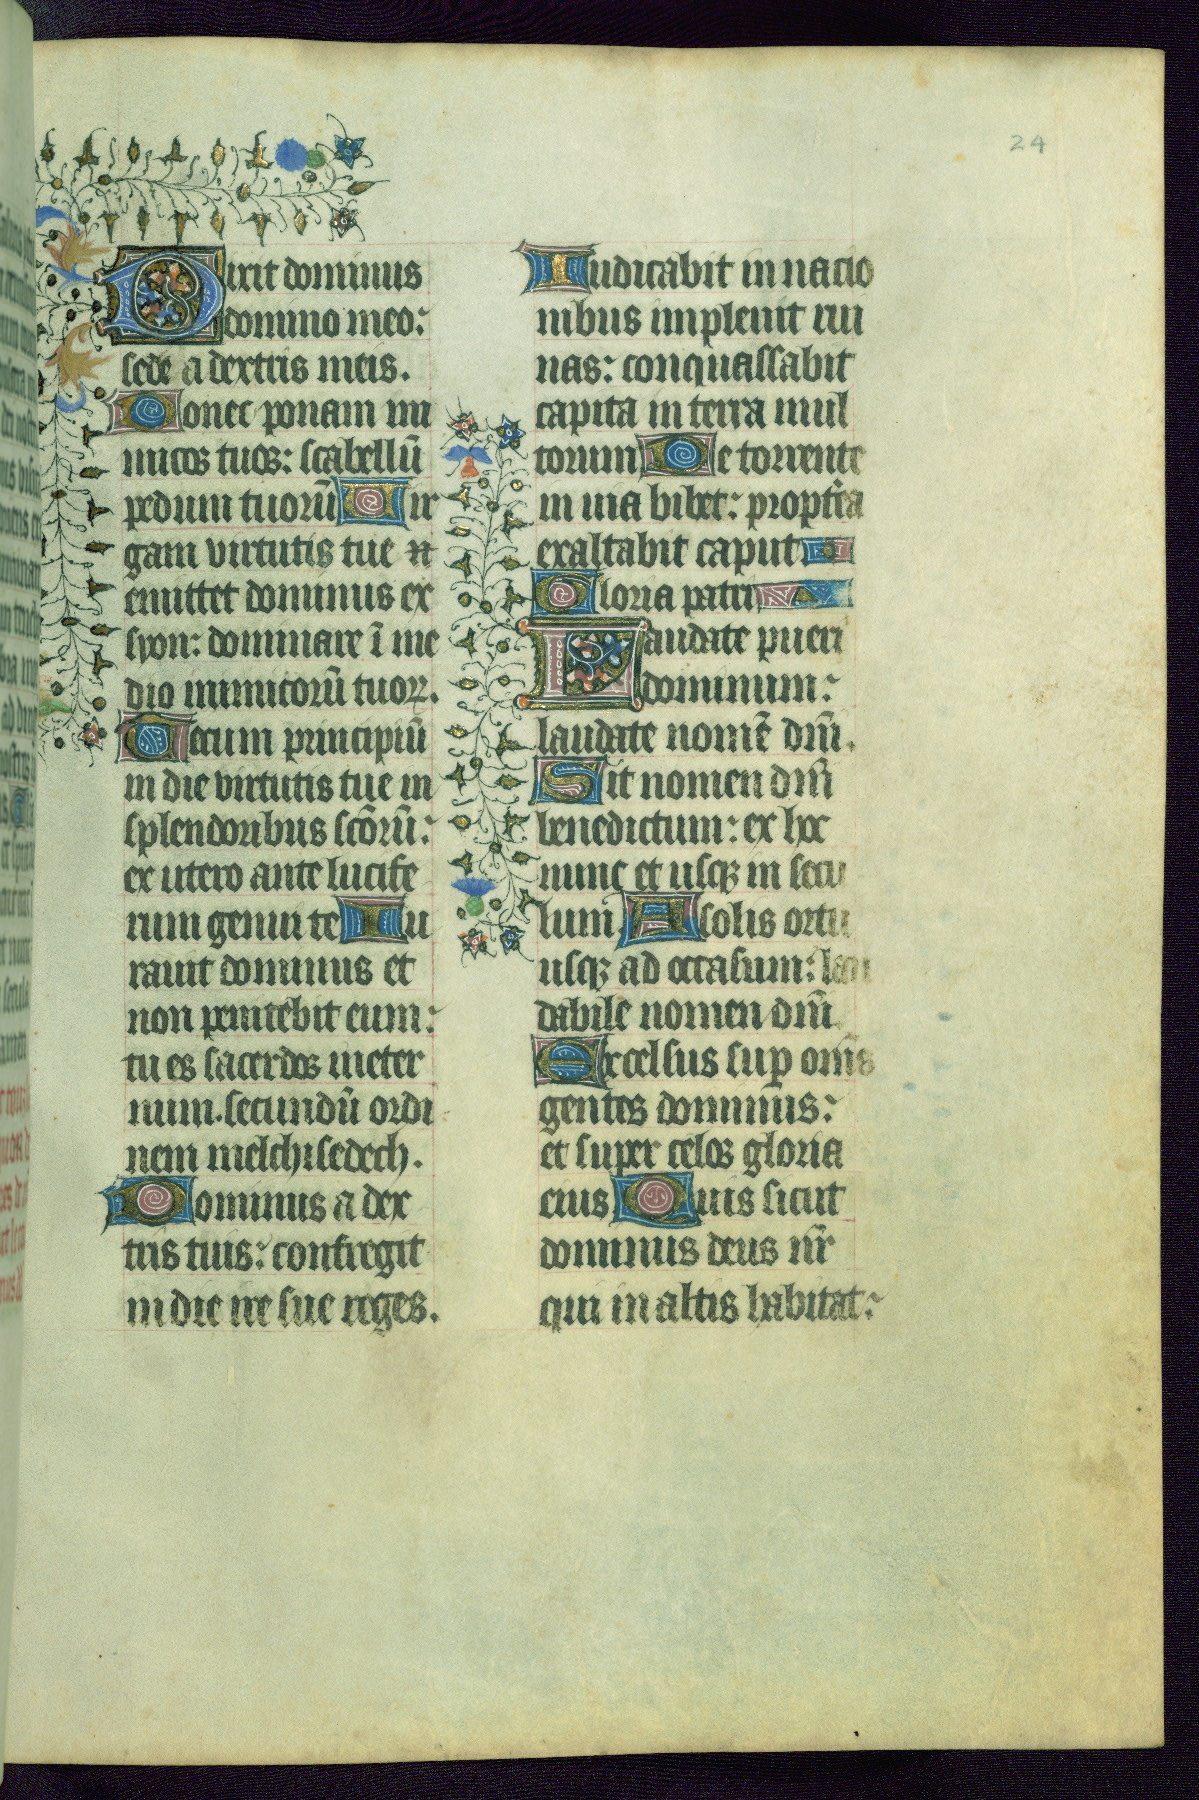 24
Dixit dominus
domino meo:
sede a dextris meis.
Donec ponam ini
micos tuos: scabellū
pedum tuorū Vir
gam virtutis tue
emittet dominus ex
syon: dominare ī me
dio inimicorū tuoꝝ.
Tecum principiū
in die virtutis tue in
splendoribus scōrū:
ex utero ante lucife
rum genui te Iu
rauit dominus et
non penitebit eum:
tu es sacerdos ineter
num. secundū ordi
nem melchisedech.
Dominus a dex
tris tuis: confregit
in die ire sue reges.
Iudicabit in nacio
nibus impleuit rui
nas: conquassabit
capita in terra mul
torum De torrente
in uia bibet: propt̄ea
exaltabit caput
Gloria patri
Laudate pueri
dominum:
laudate nomē dm̄.
Sit nomen dm̄
benedictum: ex hoc
nunc et usqꝫ in secu
lum A solis ortu
usqꝫ ad occasum: lau
dabile nomen dm̄
Excelsus suꝑ om̄s
gentes dominus:
et super celos gloria
eius Quis sicut
dominus deus nr̄
qui in altis habitat: